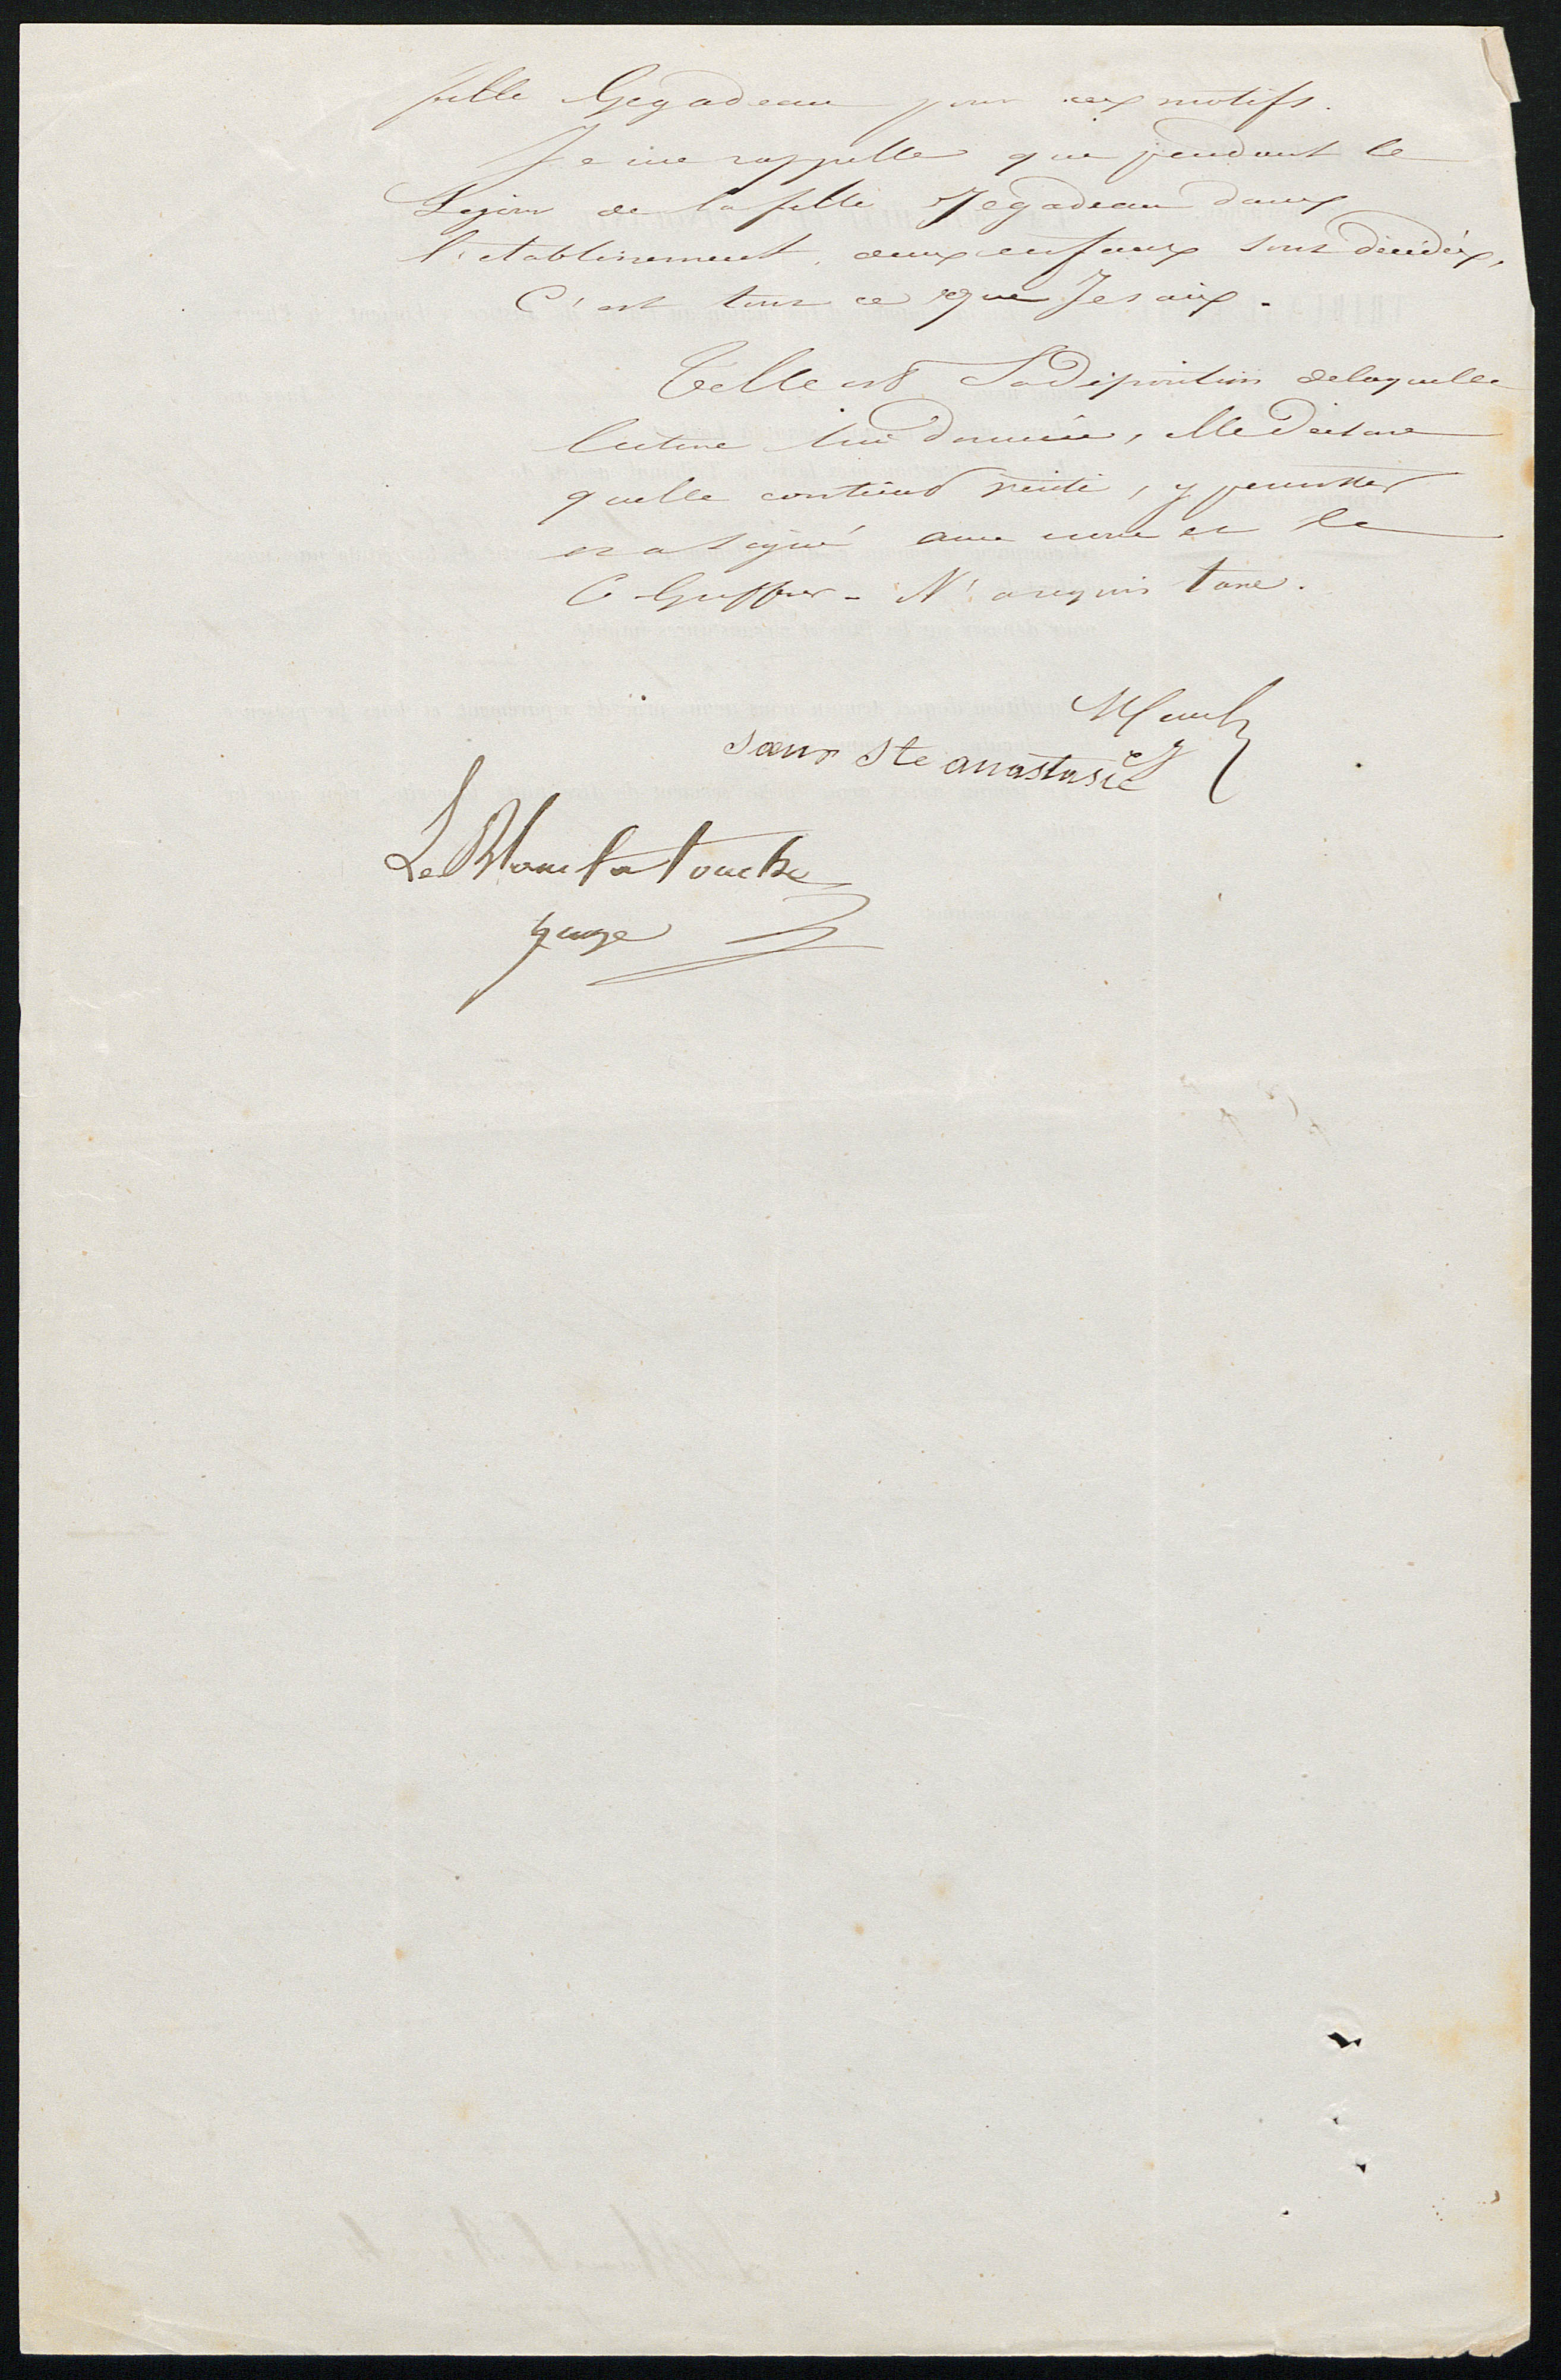 fille Gegadeau pour ces motifs.
Je me rappelle que pendant le
Sejour de la fille Jegadeau dans
l'etablissement, deux enfants sont décédés,
C'est tout ce que Je sais.
Telle est Sa déposition de laquelle
lecture lui donnée, elle déclare
quelle contient vérité, y persister
et a signé avec nous et le
C Greffier - N'a requis taxe.
sœur Ste anastasie
Le Blanc la touche
juge